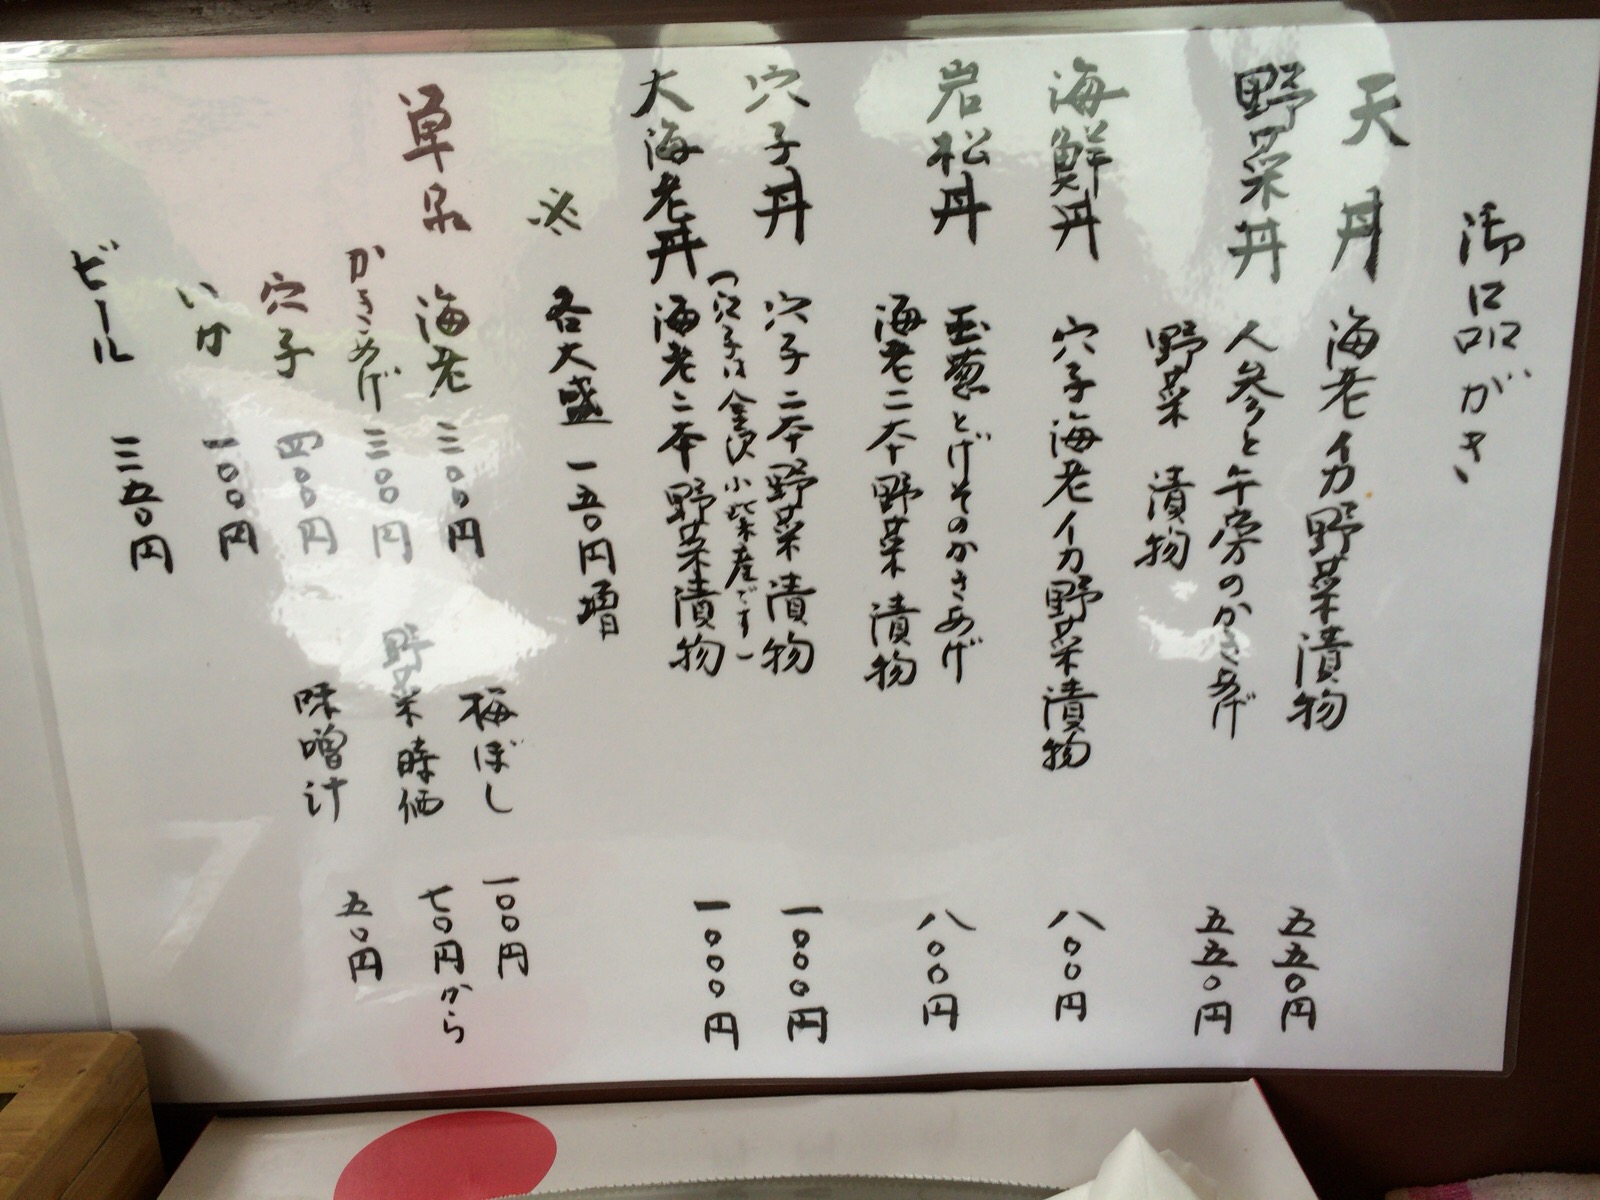 御品がき
天丼 海老イカ野菜漬物 五五〇円
野菜丼 人参と午旁のかきあげ 五五〇円
野菜 漬物
海鮮丼 穴子海老イカ野菜漬物 八〇〇円
岩松丼 玉葱とげそのかきあげ 八〇〇円
海老二本野菜漬物
穴子丼 穴子二本野菜漬物 一〇〇〇円
(穴子は金沢小柴産です)
大海老丼 海老二本野菜漬物 一〇〇〇円
※ 各大盛 一五〇円増
単品 海老 三〇〇円 梅ぼし 一〇〇円
かきあげ 三〇〇円 野菜時価 七〇円から
穴子 四〇〇円 味噌汁 五〇円
いか 一〇〇円
ビール 三五〇円